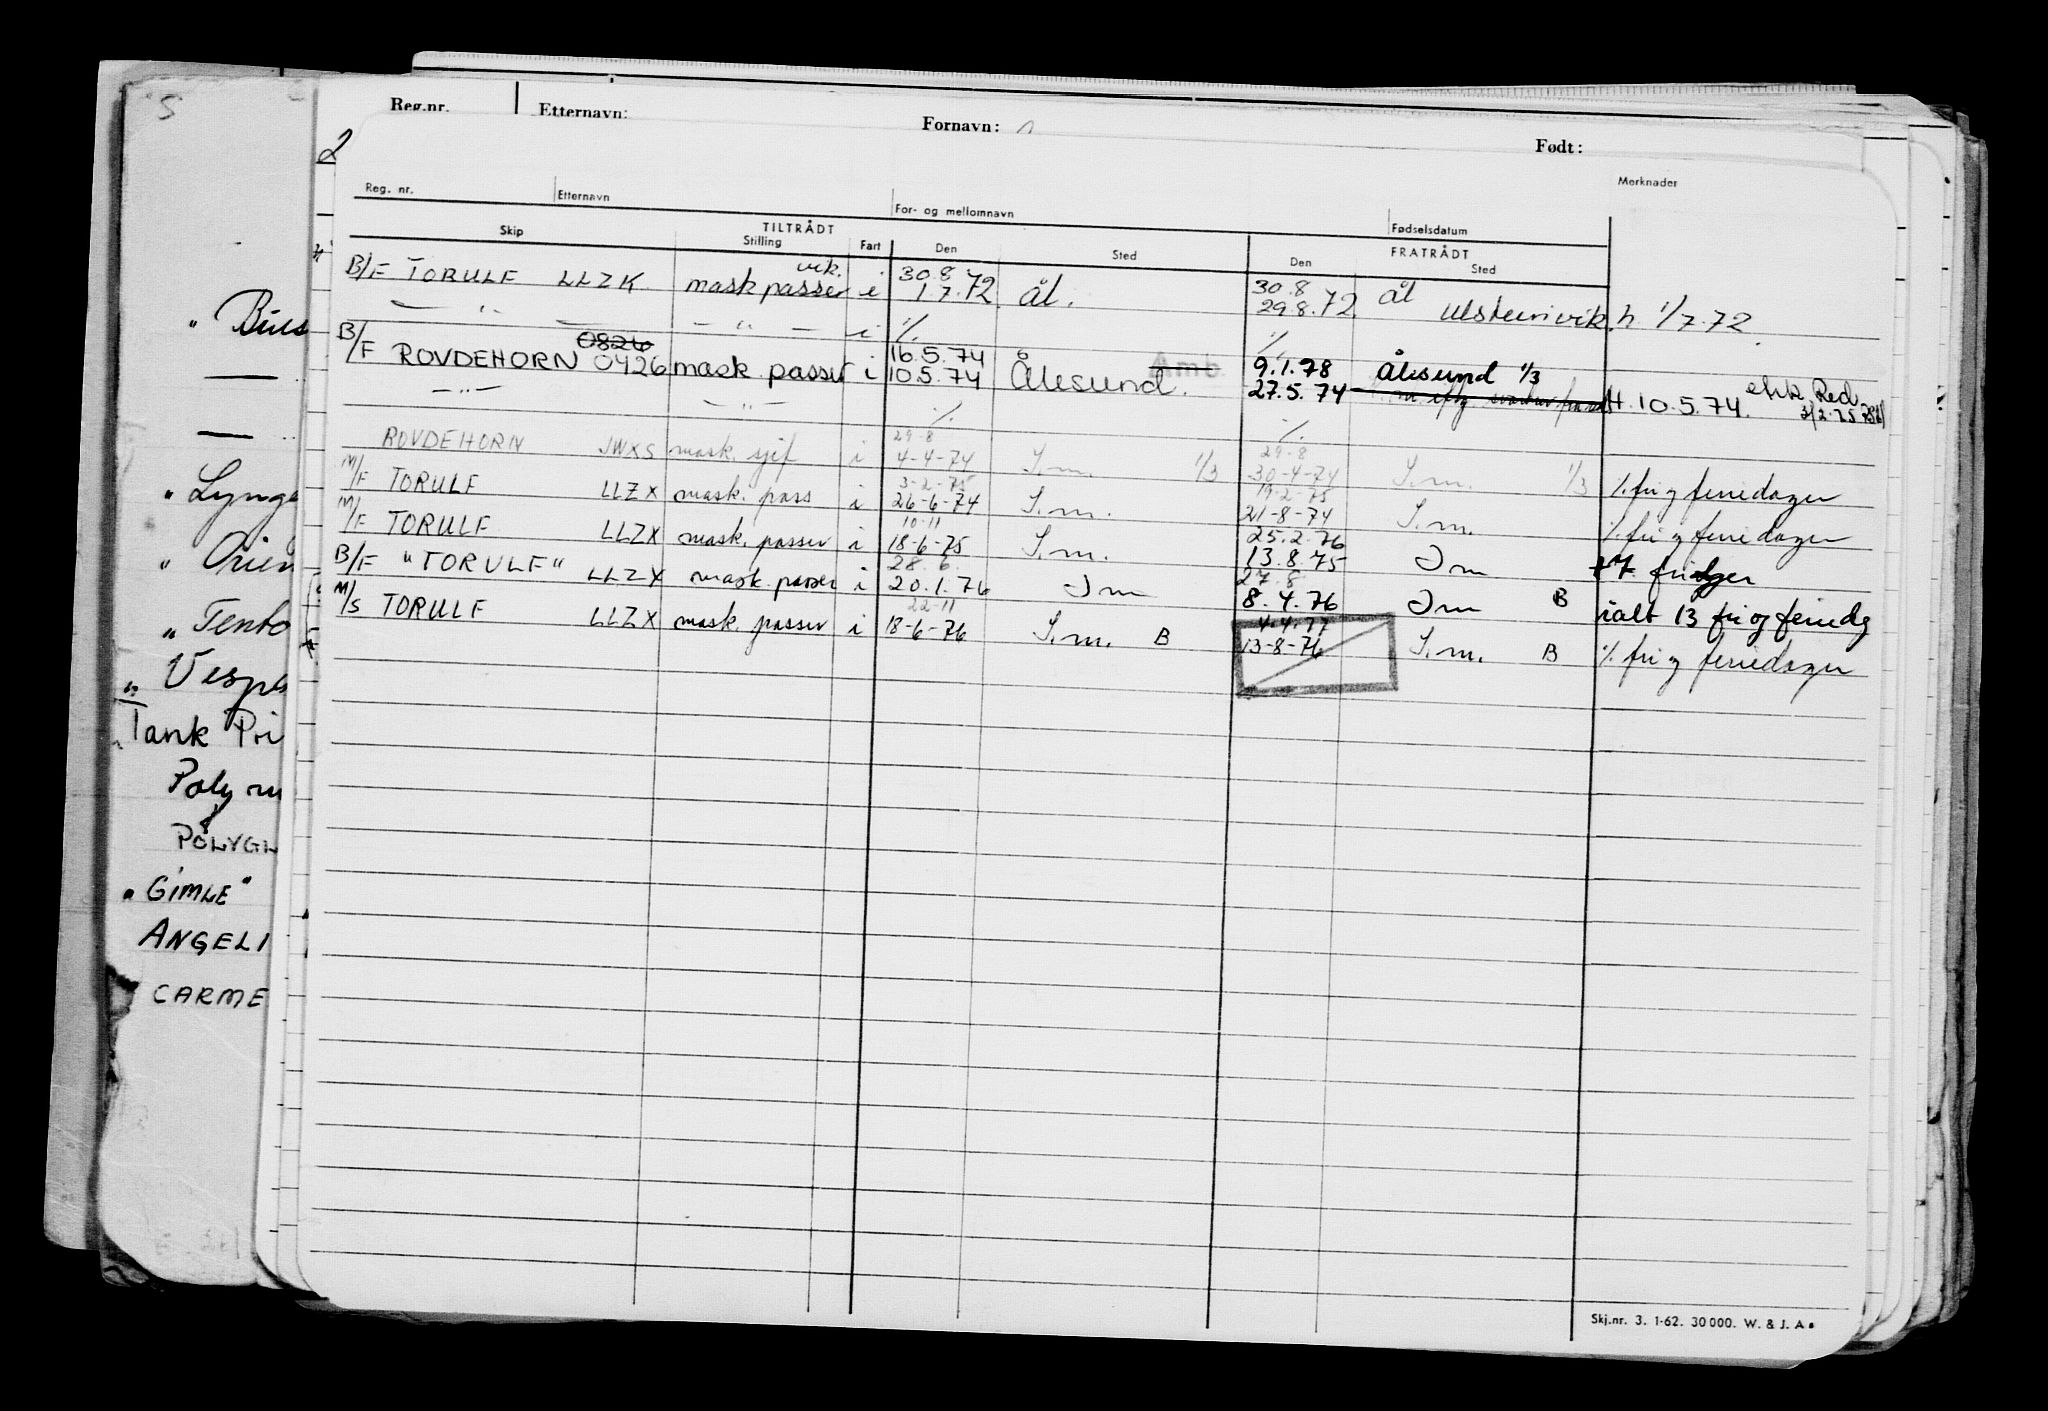 S
Reg.nr. Etternavn: Fornavn: Født:
2
Reg. nr. Etternavn For- og mellomnavn Fødselsdatum Merknader
TILTRÅDT FRATRÅDT
Skip Stilling Fart Den Sted Den Sted
vik. 30.8 30.8
B/F TORULF LLZK mask passer i 1.7.72 ål. 29.8.72 ål Ulsteinvik. h 1/7.72.
— " — — " — i ./. ./.
0826 16.5.74 Amb 9.1.78 Ålesund 1/3
B/F ROVDEHORN 0426 mask passer i 10.5.74 Ålesund. 27.5.74 H. 10.5.74. ehk Red.
— " — — " — ./. ./.
29-8 29-8
ROVDEHORN JWXS mask. sjef i 4-4-74 S.m. 1/3 30-4-74 S.m. 1/3 ./. fri og feriedager
3-2-75 19-2-75
M/F TORULF LLZX mask. pass i 26-6-74 S.m. 21-8-74 S.m. ./. fri og feriedager
10-11 25.2.76
M/F TORULF LLZX mask. passer i 18-6-75 S.m. 13.8.75 Sm fridger
28.6. 27.8
B/F "TORULF" LLZX mask. passer i 20.1.76 Sm 8.4.76 Sm B ialt 13 fri og feriedg
22-11 4.4.77
M/S TORULF LLZX mask. passer i 18-6-76 S.m. B 13-8-76 S.m. B ./. fri og feriedager
" Lynge
" Orien
" Tento
" Vesp
Tank Pri
Poly
POLYGL
"GIMLE"
ANGELI
CARME
Skj.nr. 3. 1-62. 30 000. W. & J. A